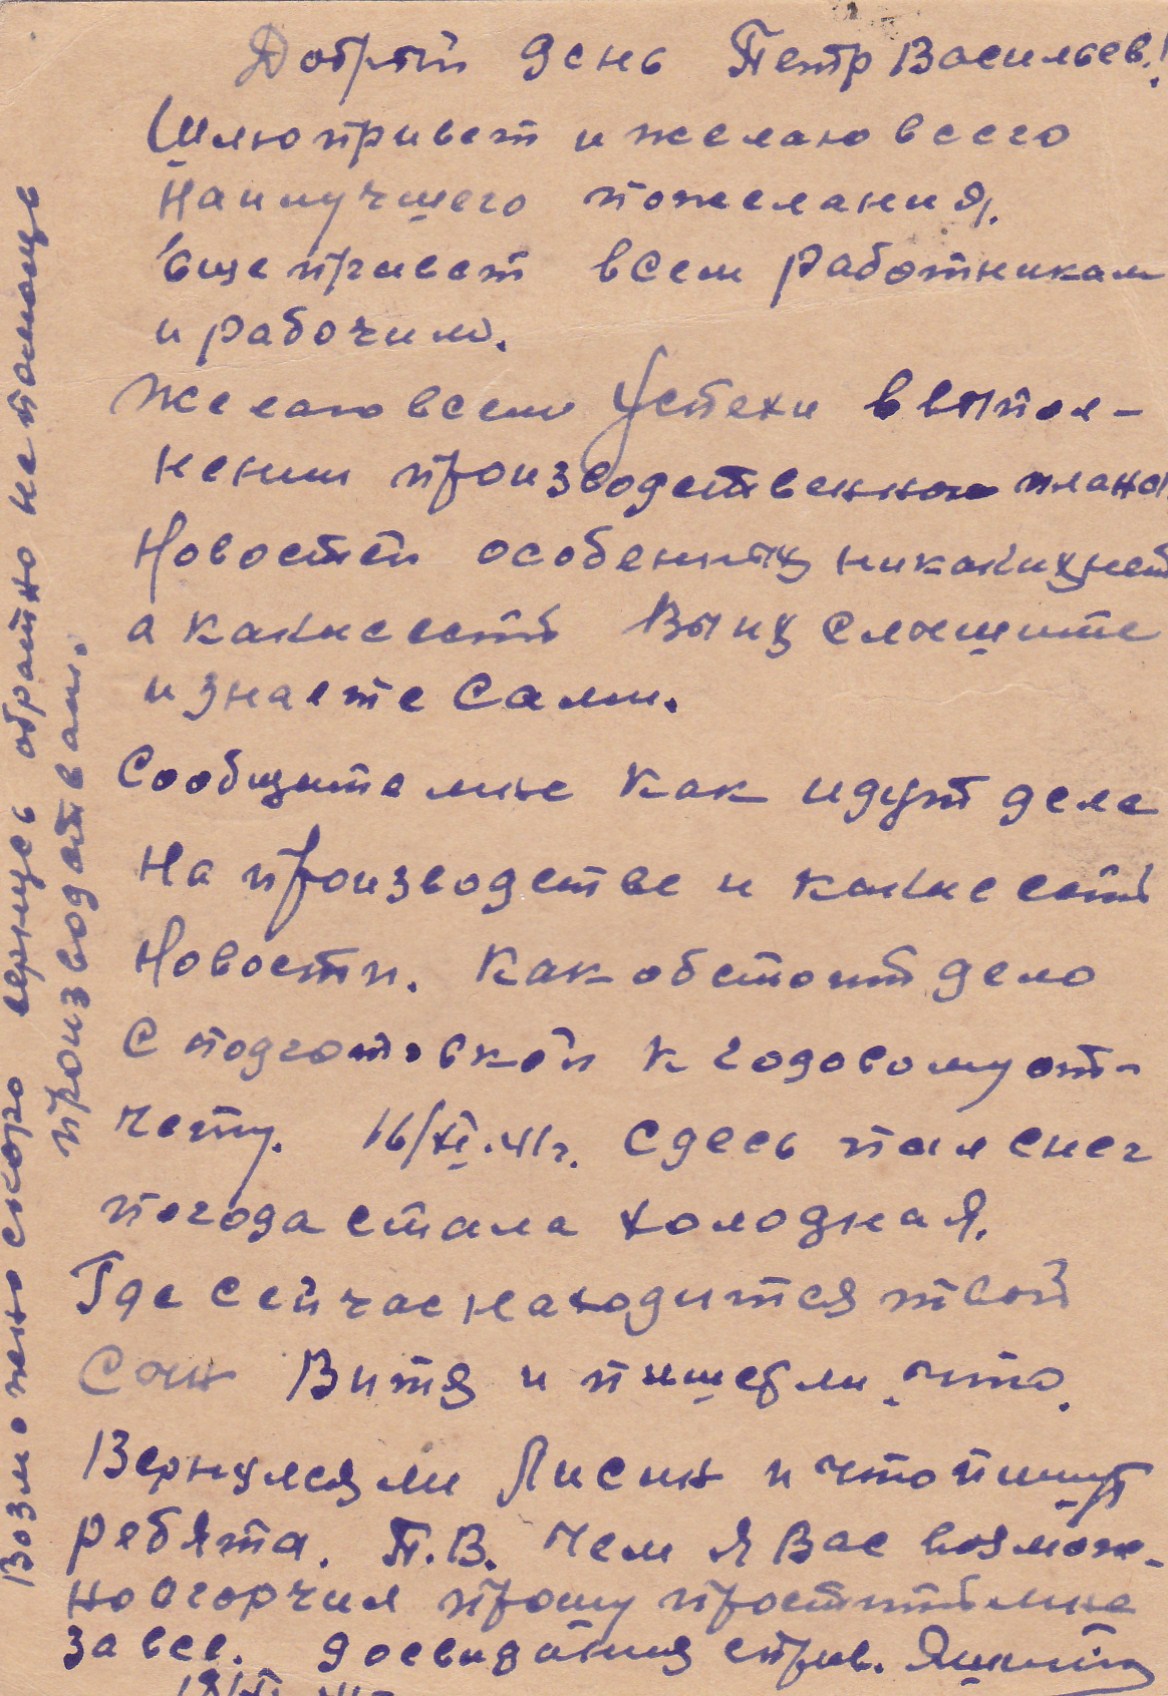 Добрый день Петр Васильев.!
Шлю привет и желаю всего
наилучшего пожелания.
Еще привет всем работникам
и рабочим.
Желаю всем успехи в выпол-
нении производственного плана.
Новостей особенных никаких нет
а какие есть Вы их слышите
и знаете сами.
Сообщите мне как идут дела
на производстве и какие есть
новости. Как обстоит дело
с подготовкой к годовому от-
чету. 16/XI.41г. сдесь пал снег
погода стала холодная.
Где сейчас находится твой
сын Витя и пишет ли что.
Вернулся ли Лисин и что пишут
ребята. П.В. Чем я Вас возмож-
но огорчил прошу простить мне
за все. досвидания с прив.
Возможно скоро вернусь обратно на помощь
производствам.